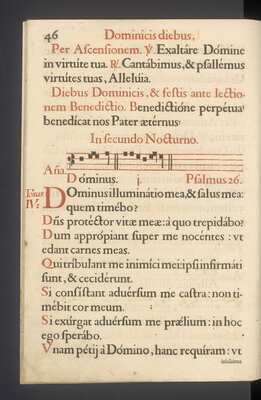 46 Dominicis diebus,
Per Ascensionem. ℣. Exaltáre Dómine
in virtúte tua. ℟. Cantábimus, & psallémus
virtútes tuas, Allelúia.
Diebus Dominicis, & festis ante lectio-
nem Benedictio. Benedictióne perpétua
benedícat nos Pater ætérnus
In secundo Nocturno.
Aña. Dóminus. j. Psalmus 26.
Tonus
IV.
Dominus illuminátio mea, & salus mea:
quem timébo?
Dñs protéctor vitæ meæ: à quo trepidábo?
Dum apprópiant super me nocéntes : vt
edant carnes meas.
Qui tríbulant me inimíci mei: ipsi infirmáti
sunt, & cecidérunt.
Si consístant aduérsum me castra: non ti-
mébit cor meum.
Si exúrgat aduérsum me prælium: in hoc
ego sperábo.
Vnam pétij à Dómino, hanc requíram: vt